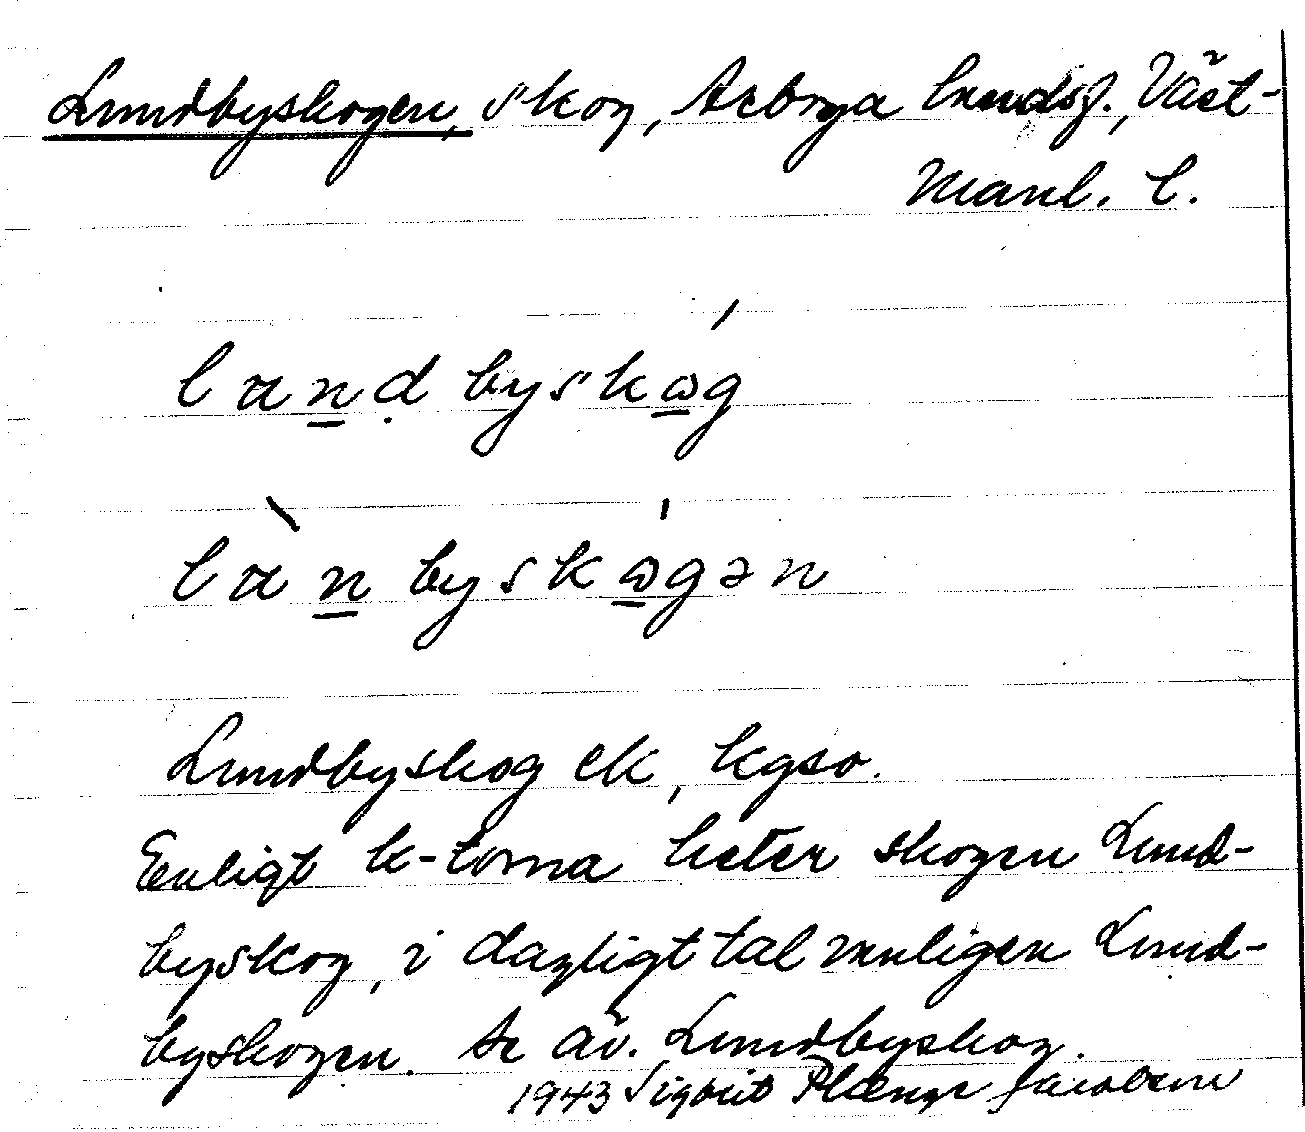 Lundbyskogen, skog, Arboga landsf., Väst-
manl. l.
lund byskog
lun byskogən
Lundbyskog ek, kgso.
Enligt k-torna heter skogen Lund-
byskog, i dagligt tal vanligen Lund-
byskogen. Se äv. Lundbyskog.
1943 Sigbrit Plænge Jacobson